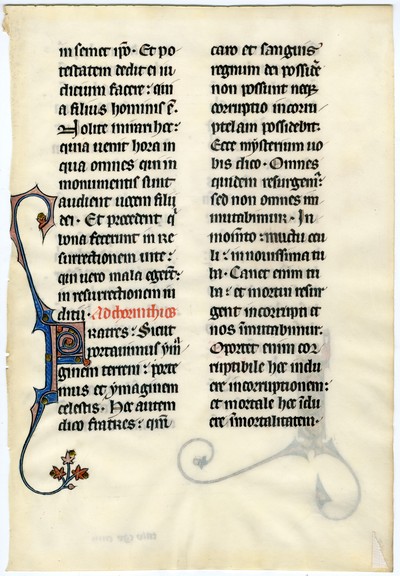 in semet ip̄o · Et po
testatem dedit ei iu
dicium facere : qui
a filius hominis ē .
Nolite mirari hec :
quia uenit hora in
qua omnes qui in
monumentis sunt
audient uocem filij
dei · Et procedent q̇
bona fecerunt in re
surrectionem uite :
qui uero mala egerūt :
in resurrectionem iu
dicii · Ad chorinthios
Fratres : Sicut
portauimus ymā
ginem terreni : porte
mus et ymaginem
celestis · Hec autem
dico fratres : qm̄
caro et sanguis
regnum dei possidē
non possunt neqȝ
corruptio incorru
ptelam possidebit .
Ecce mysterium uo
bis dico · Omnes
quidem resurgemꝰ :
sed non omnes im
mutabimur · In
mom̄to : in ictu ocu
li : in nouissima tu
ba · Canet enim tu
ba : et mortui resur
gent incorrupti et
nos ī̄mutabimur .
Oportet enim cor
ruptibile hoc indu
ere incorruptionem :
et mortale hoc īdu
ere īmortalitatem ·